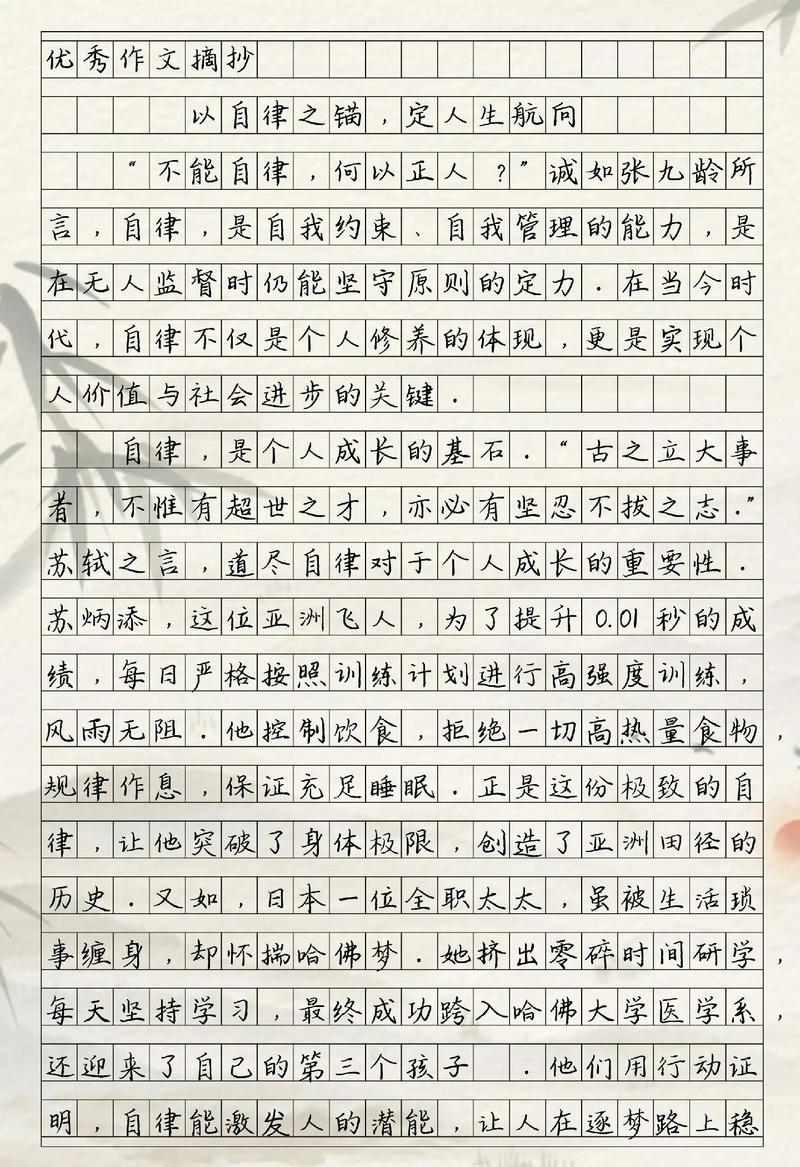 优秀作文摘抄
以自律之锚,定人生航向
“不能自律,何以正人?”诚如张九龄所
言,自律,是自我约束、自我管理的能力,是
在无人监督时仍能坚守原则的定力.在当今时
代,自律不仅是个人修养的体现,更是实现个
人价值与社会进步的关键.
自律,是个人成长的基石.“古之立大事
者,不惟有超世之才,亦必有坚忍不拔之志.”
苏轼之言,道尽自律对于个人成长的重要性.
苏炳添,这位亚洲飞人,为了提升0.01秒的成
绩,每日严格按照训练计划进行高强度训练,
风雨无阻.他控制饮食,拒绝一切高热量食物,
规律作息,保证充足睡眠.正是这份极致的自
律,让他突破了身体极限,创造了亚洲田径的
历史.又如,日本一位全职太太,虽被生活琐
事缠身,却怀揣哈佛梦.她挤出零碎时间研学,
每天坚持学习,最终成功跨入哈佛大学医学系,
还迎来了自己的第三个孩子.他们用行动证
明,自律能激发人的潜能,让人在逐梦路上稳